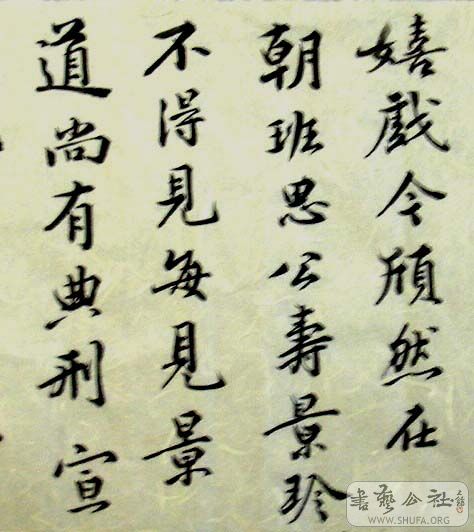 嬉戲今頎然在
朝班思公壽景珍
不得見每見景
道尚有典刑 宣
書藝公社
WWW.SHUFA.ORG